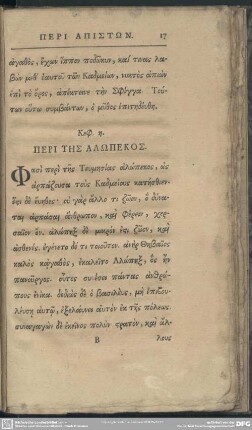 ΠΕΡΙ ΑΠΙΣΤΩΝ. 17
ἀγαθὸς, ἔχων ἵππον ποδώκη, καί τινας λα-
βὼν μεθ' ἑαυτοῦ τῶν Καδμείων, νυκτὸς ἀπιὼν
ἐπὶ τὸ ὄρος, ἀπέκτεινε τὴν Σφίγγα. Τού-
των οὕτω συμβάντων, ὁ μῦθος ἐπετηδεύθη.
Κεφ. η.
ΠΕΡΙ ΤΗΣ ΑΛΩΠΕΚΟΣ.
Φασὶ περὶ τῆς Τευμησίας ἀλώπεκος, ὡς
ἁρπάζουσα τοὺς Καδμείους κατήσθιεν·
ἔστι δὲ εὔηθες· οὐ γάρ ἄλλο τι ζῶον, ὃ δύνα-
ται ἁρπάσαι ἄνθρωπον, καὶ φέρειν, χερ-
σαῖον ὄν. ἀλώπηξ δὲ μικρόν ἐστι ζῶον, καὶ
ἀσθενές. ἐγένετο δέ τι τοιοῦτον. ἀνὴρ Θηβαῖος
καλὸς κἀγαθὸς, ἐκαλεῖτο Ἀλώπηξ, ὃς ἦν
πανοῦργος. οὗτος πάντας ἀνθρώ-
πους ἐνίκα. δεδιὼς δὲ ὁ βασιλεὺς, μὴ ἐπιβου-
λεύσῃ αὐτῷ, ἐξελαύνει αὐτὸν ἐκ τῆς πόλεως.
συναγαγὼν δὲ ἐκεῖνος πολὺν στρατὸν, καὶ ἄλ-
B λους